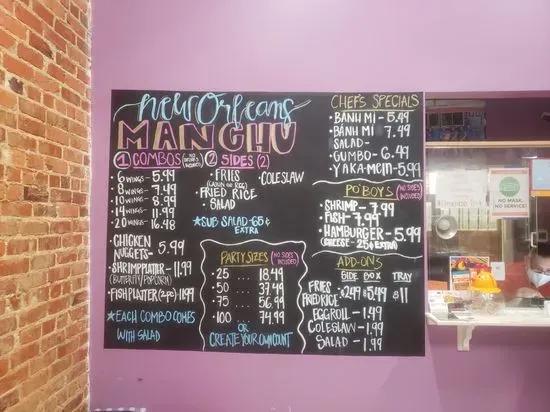 New Orleans
MANCHU
1 COMBOS (NO DRINKS INCLUDED) 2 SIDES (2)
• 6 WINGS - 5.99
• 8 WINGS - 7.49
• 10 WINGS - 8.99
• 14 WINGS - 11.99
• 20 WINGS - 16.48
• CHICKEN NUGGETS - 5.99
• SHRIMP PLATTER - 11.99
(BUTTERFLY/POPCORN)
• FISH PLATTER (2PC) - 11.99
★ EACH COMBO COMES
WITH SALAD
• FRIES
(CAJUN OR REG)
• FRIED RICE
• SALAD
• COLESLAW
★ SUB SALAD - 65¢
EXTRA
PARTY SIZES (NO SIDES INCLUDED)
• 25 .... 18.49
• 50 .... 37.49
• 75 .... 56.99
• 100 .... 74.99
OR
CREATE YOUR OWN COUNT
CHEF'S SPECIALS
• BANH MI - 5.49
• BANH MI 7.49
SALAD -
• GUMBO - 6.49
• YAKA-MEIN - 5.99
PO'BOYS (NO SIDES INCLUDED)
• SHRIMP - 7.99
• FISH - 7.99
• HAMBURGER - 5.99
(CHEESE - 25¢ EXTRA)
ADD-ONS
SIDE BOX TRAY
FRIES
FRIED RICE > 2.49 $5.49 $11
EGGROLL - 1.49
COLESLAW - 1.99
SALAD - 1.99
NO MASK,
NO SERVICE!